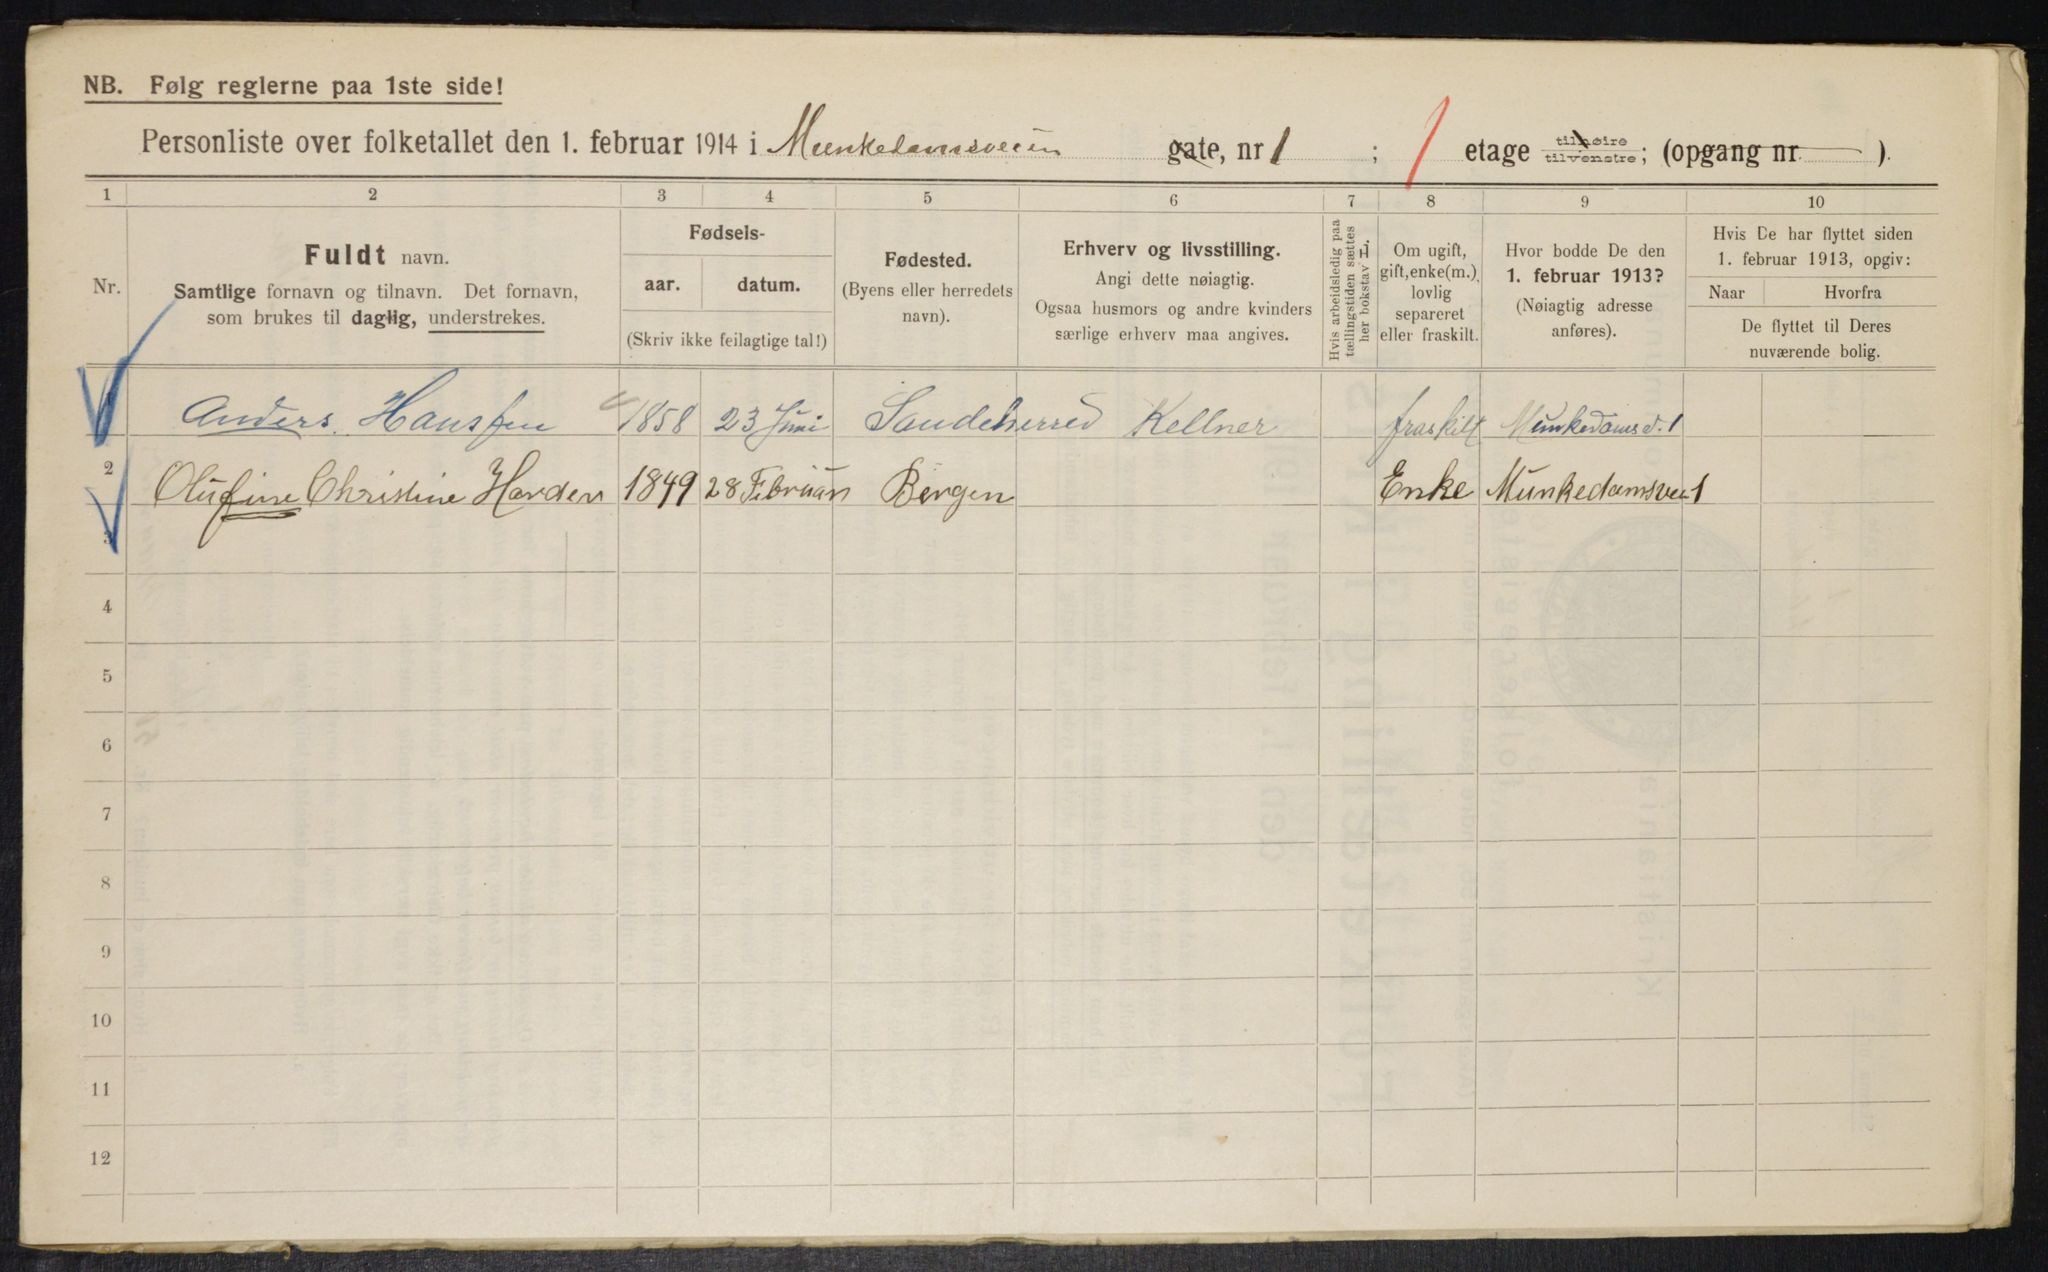 NB. Følg reglerne paa 1ste side!
Personliste over folketallet den 1. februar 1914 i Munkedamsveien gate, nr 1 ; 1 etage tilhøire tilvenstre; (opgang nr. ).
1 2 3 4 5 6 7 8 9 10
Nr.
Fuldt navn.
Samtlige fornavn og tilnavn. Det fornavn,
som brukes til daglig, understrekes.
Fødsels-
aar. datum.
(Skriv ikke feilagtige tal!)
Fødested.
(Byens eller herredets
navn).
Erhverv og livsstilling.
Angi dette nøiagtig.
Ogsaa husmors og andre kvinders
særlige erhverv maa angives.
Hvis arbeidsledig paa
tællingstiden sættes
her bokstav L.
Om ugift,
gift, enke(m.),
lovlig
separeret
eller fraskilt.
Hvor bodde De den
1. februar 1913?
(Nøiagtig adresse
anføres).
Hvis De har flyttet siden
1. februar 1913, opgiv:
Naar Hvorfra
De flyttet til Deres
nuværende bolig.
Anders Hanssen 1858 23 Juni Sandeherred Kellner fraskilt Munkedamsv. 1
2 Olufine Christine Harden 1849 28 Februar Bergen Enke Munkedamsvei 1
3
4
5
6
7
8
9
10
11
12